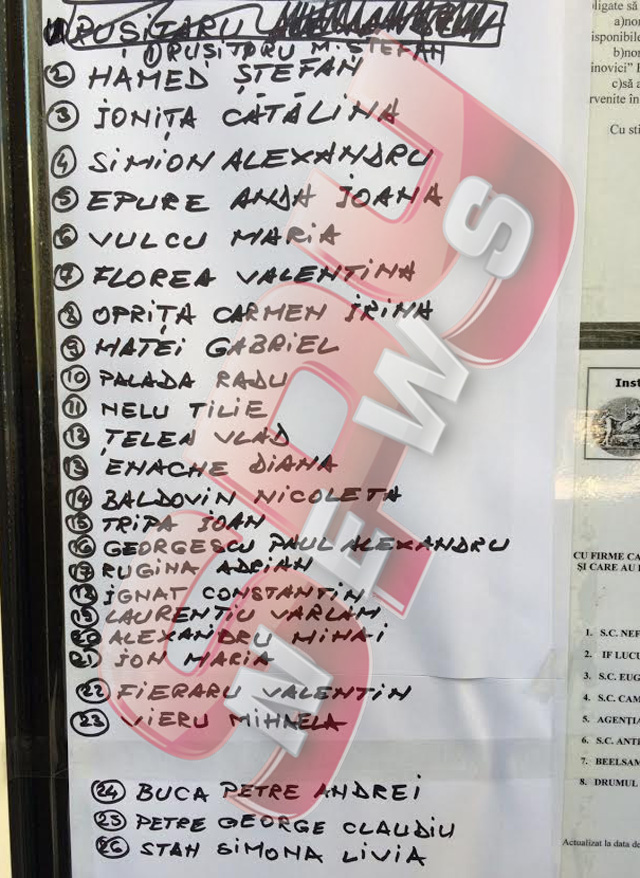 1) RUSITARU
1) RUSITORU M. STEFAN
2) HAMED ȘTEFAN
3) IONIȚA CĂTĂLINA
4) SIMION ALEXANDRU
5) EPURE ANDA IOANA
6) VULCU MARIA
7) FLOREA VALENTINA
8) OPRIȚA CARMEN IRINA
9) MATEI GABRIEL
10) PALADA RADU
11) NELU TILIE
12) ȚELEA VLAD
13) ENACHE DIANA
14) BALDOVIN NICOLETA
15) TRIPA IOAN
16) GEORGESCU PAUL ALEXANDRU
17) RUGINA ADRIAN
18) IGNAT CONSTANTIN
19) LAURENTIU VARLAM
20) ALEXANDRU MIHAI
21) ION MARIA
22) FIERARU VALENTIN
23) VIERU MIHAELA
24) BUCA PETRE ANDREI
25) PETRE GEORGE CLAUDIU
26) STAN SIMONA LIVIA
SPDJ
NEWS
ligate să
a)nor
isponibile
b)nor
inovici"
c)să a
rvenite în
Cu sti
Inst
CU FIRME CA
ȘI CARE AU
1. S.C. NEF
2. IF LUCU
3. S.C. EUG
4. S.C. CAM
5. AGENȚIA
6. S.C. ANTI
7. BEELSAM
8. DRUMUL
Actualizat la data de